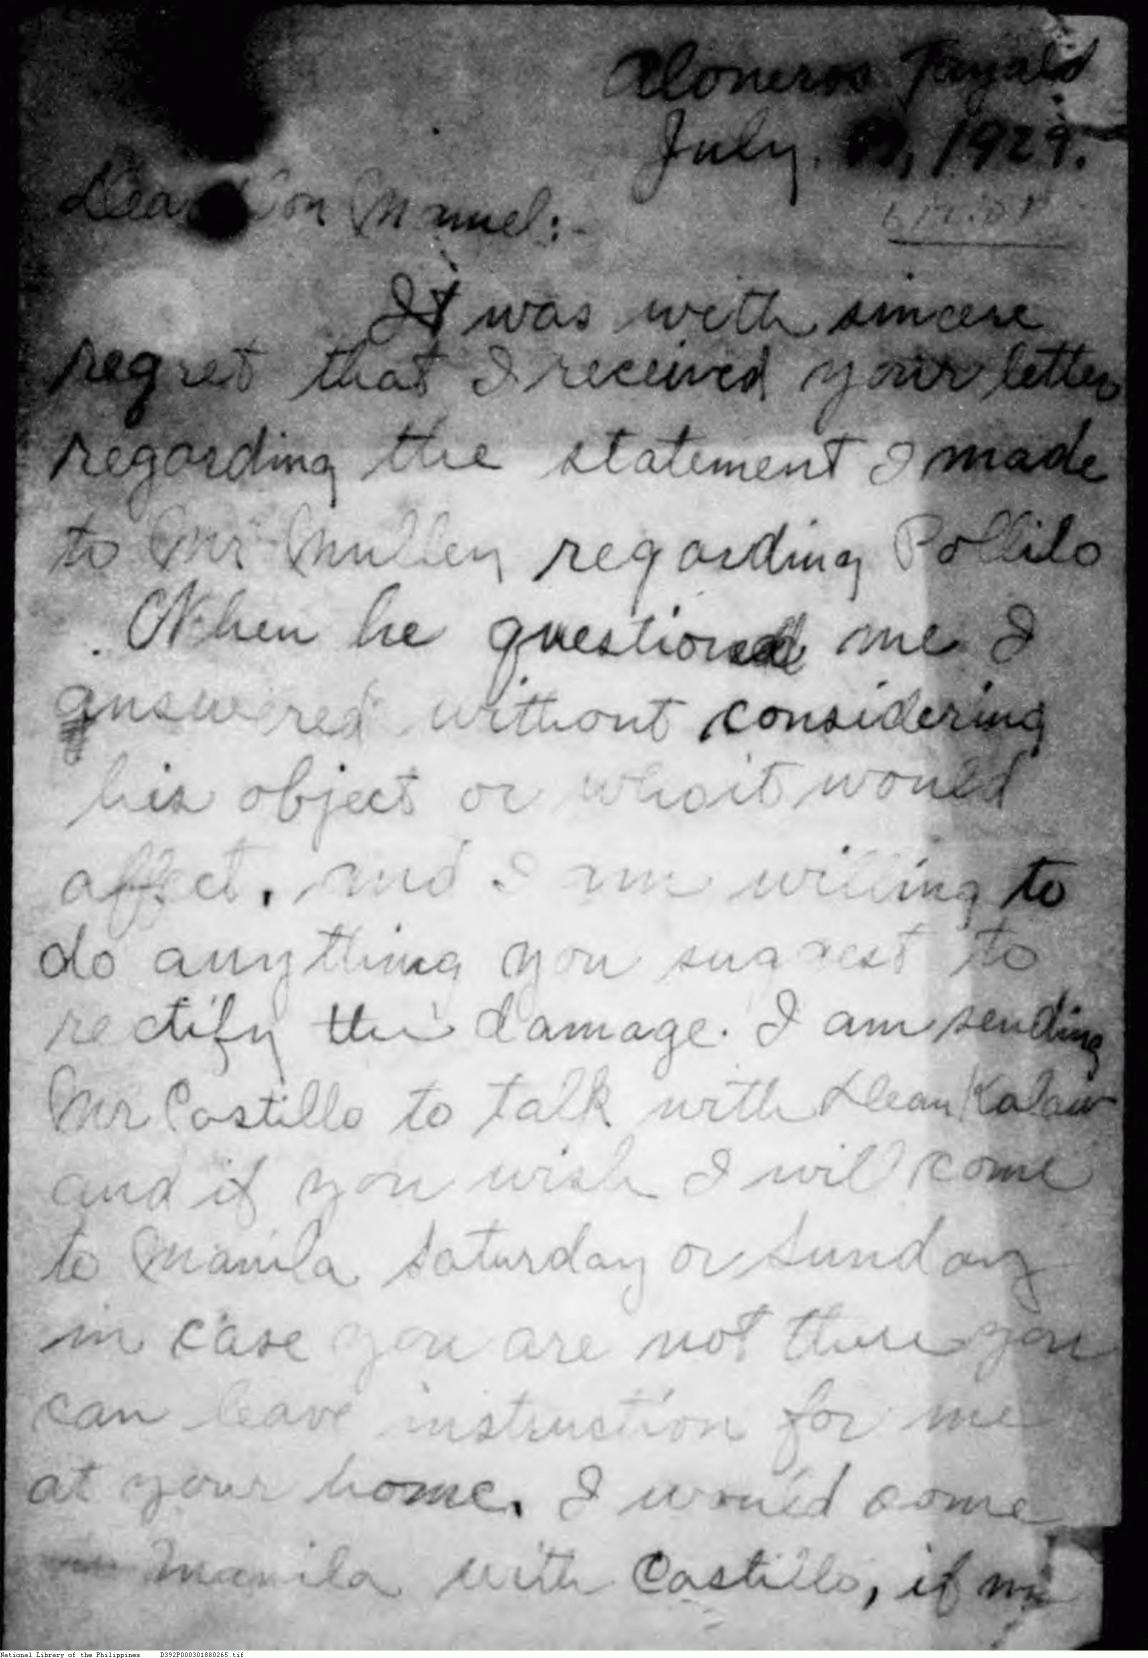 Aloneros Tayabas
July. , 1929.
Dear Don Manuel:-
It was with sincere
regret that I received your letter
regarding the statement I made
to Mr Mullen regarding Pollilo
. When he questioned me I
answered without considering
his object or who it would
affect, and I am willing to
do anything you suggest to
rectify the damage. I am sending
Mr Castillo to talk with Dean Kalaw
and if you wish I will come
to Manila Saturday or Sunday
in case you are not there you
can leave instruction for me
at your home. I would come
Manila with Castillo, if my
National Library of the Philippines D392P000301880265.tif